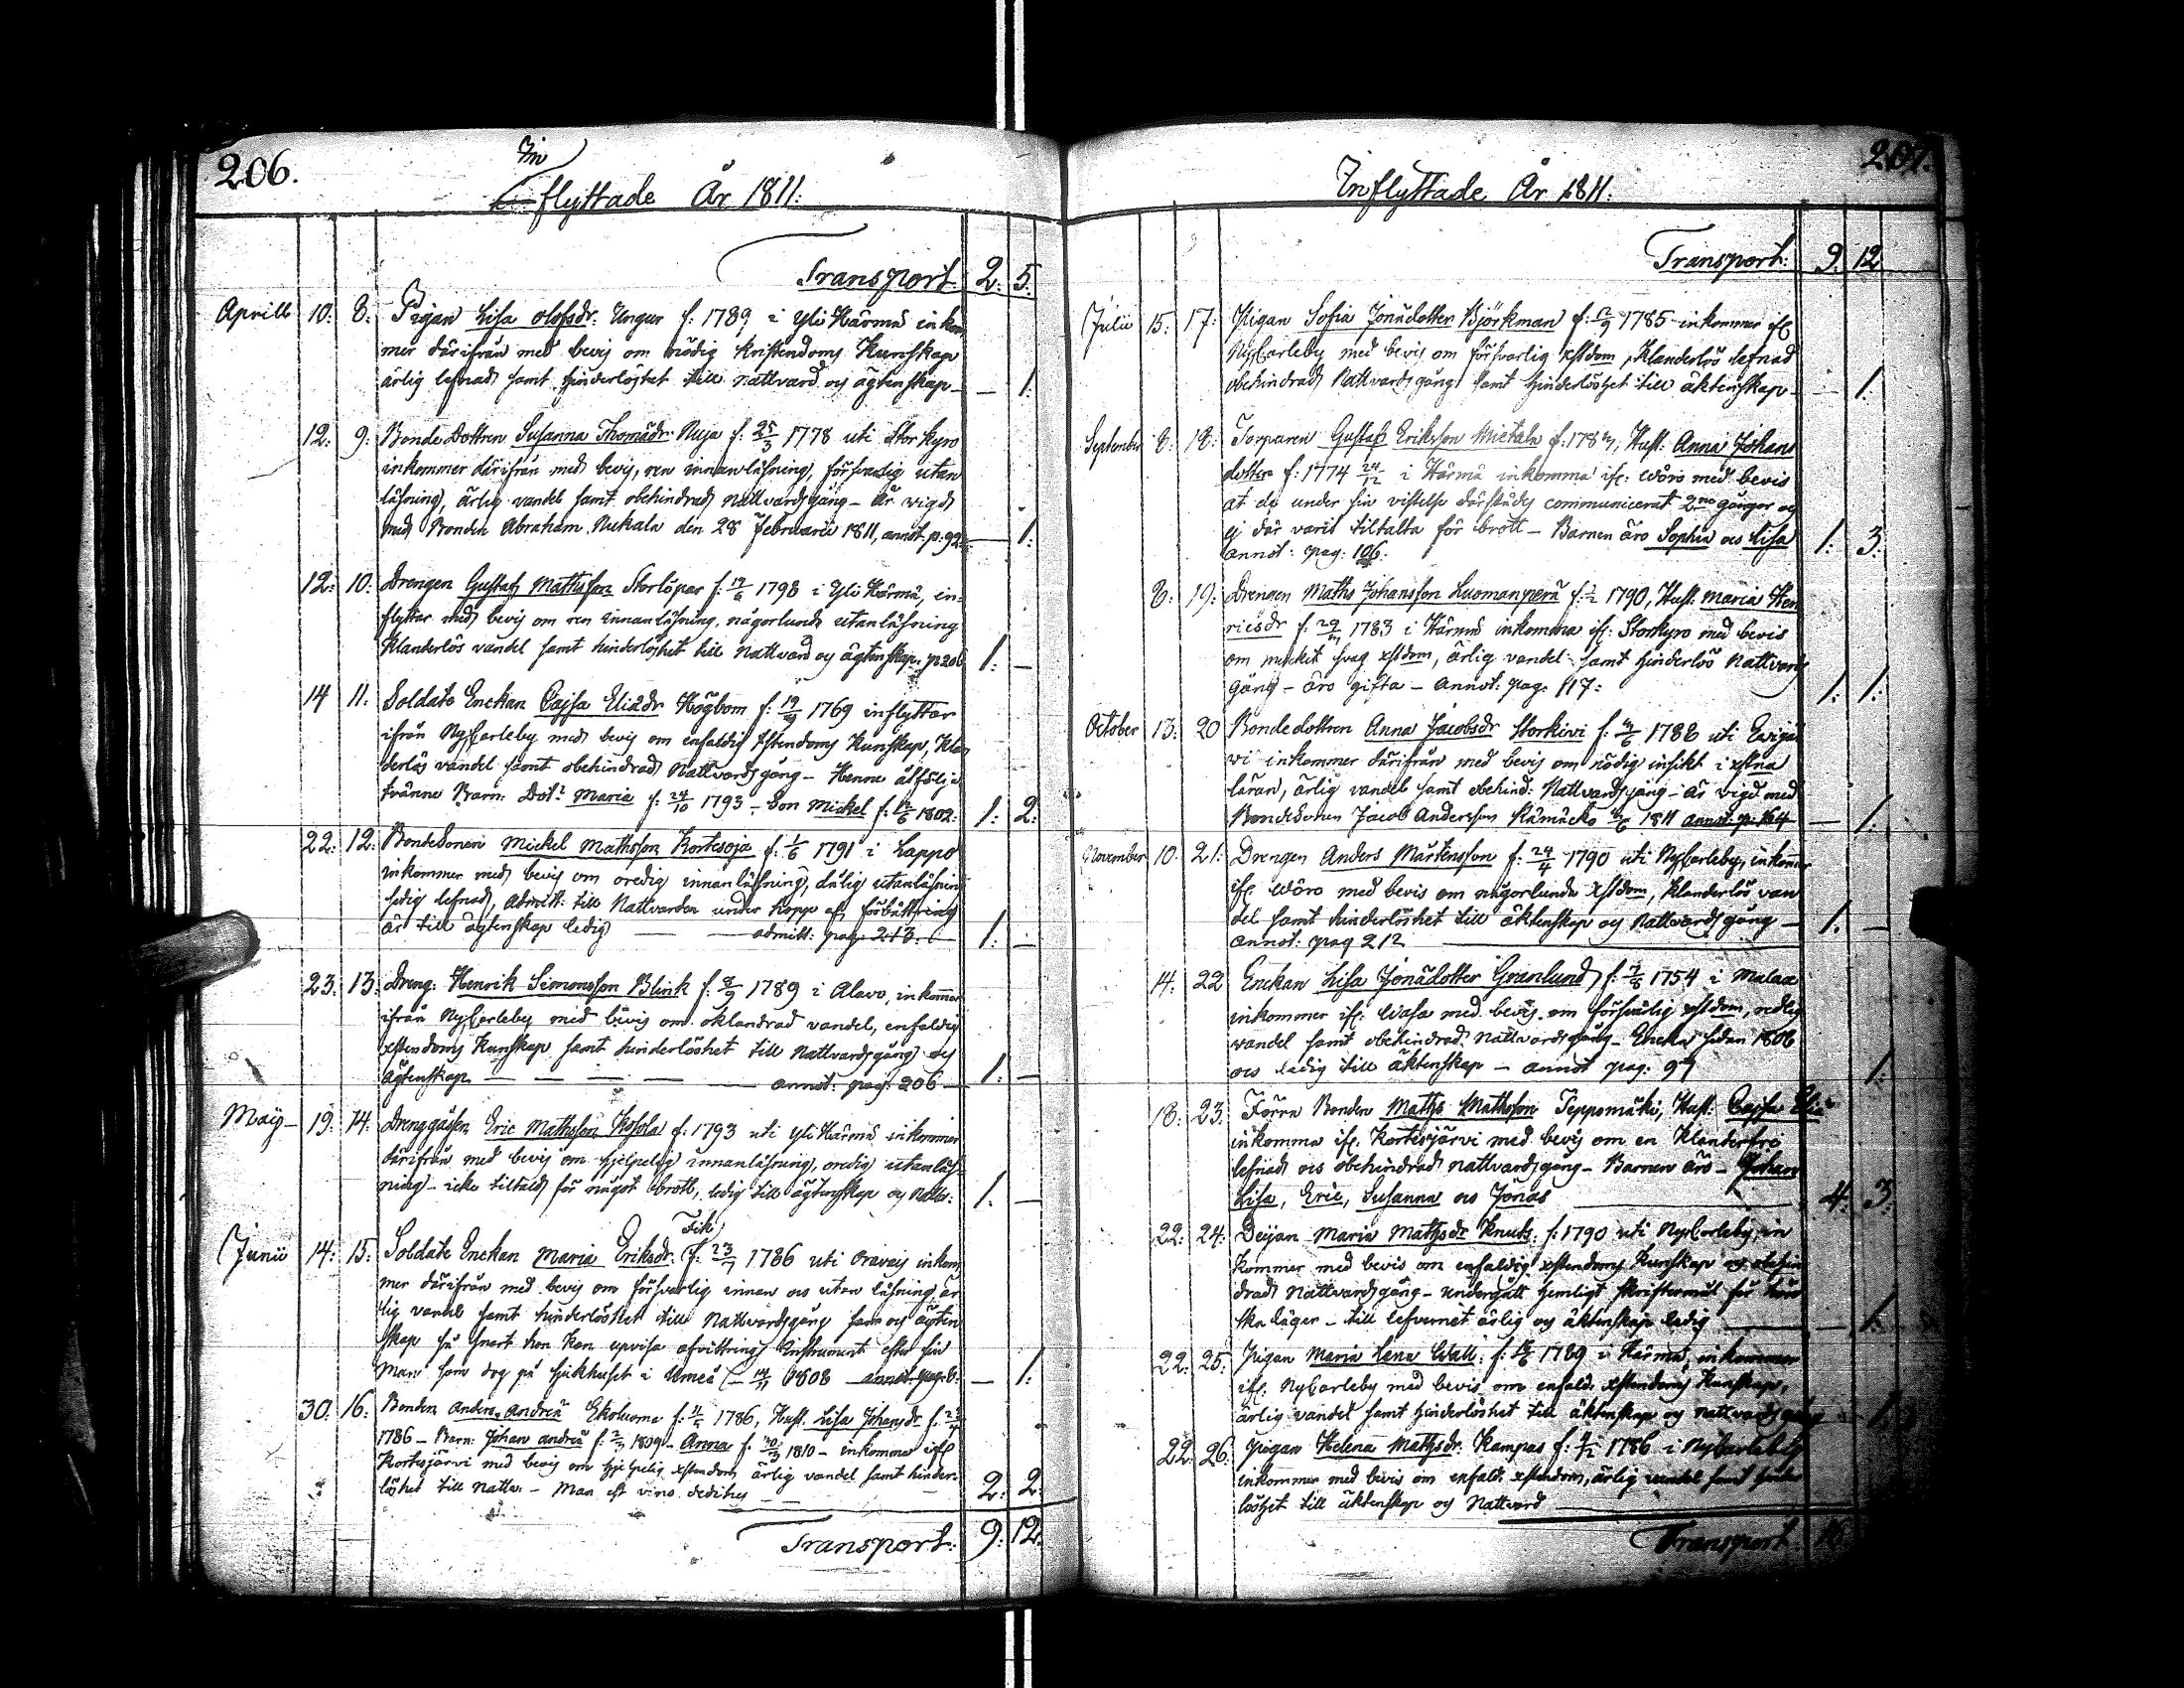 206.
In
flyttade År 1811:
Transport: 2: 5:
Aprill 10: 8: Pigan Lisa Olofsdr. Ungur f: 1789 i Yli Härmä inkom
mer därifrån med bevis om nödig kristendoms Kunskap
ärlig lefnad samt hinderlöshet till nattvard och ägtenskap — — 1:
12: 9: Bonde Dottren Susanna Thomädr. Nuja f: 25/3 1778 uti Storkyro
inkommer därifrån med bevis, ren innanläsning, försvarlig utan
läsning, ärlig vandel samt obehindrad nattvardsgång — är vigd
med Bonden Abraham Nukala den 28 Februarii 1811, annot. p: 92 — 1:
12: 10: Drengen Gustaf Mathsson Storlöpar f: 1798 i Yli Härmä, in-
flyttar med bevis om ren innanläsning, någorlunda utanläsning
Klanderlös vandel samt hinderlöshet till nattvard och ägtenskap. p 206 1: —
14 11: Soldate Enckan Cajsa Eliädr Högbom f: 1769 inflyttar
ifrån NyCarleby med bevis om enfaldig Xstendoms Kunskap, Klan
derlös vandel samt obehindrad Nattvardsgång — Henne åtfölja
tvänne Barn: Dot: Maria f: 24/10 1793 — Son Mickel f: 1802: 1: 2:
22: 12: BondeSonen Mickel Mathsson Kortesoja f: 1/6 1791 i Lappo
inkommer med bevis om oredig innanläsning, dålig utanläsning
sedig lefnad, admitt: till Nattvarden under hopp af förbättring
är till ägtenskap ledig — — admitt: pag: 213: 1: —
23: 13: Dreng: Henrik Simonsson Blink f: 8/9 1789 i Alavo, inkommer
ifrån NyCarleby med bevis om oklandrad vandel, enfaldig
Xstendoms Kunskap samt hinderlöshet till Nattvardsgång och
ägtenskap — — — — annot: pag: 206 — 1: —
Maij — 19: 14: Drenggåssen Eric Mathsson Kosola f: 1793 uti Yli Härmä inkommer
därifrån med bevis om hjelpelig innanläsning, oredig utanläs-
ning — icke tiltald för något brott, ledig till ägtenskap och Nattv: 1. —
Fik
Junii 14: 15: Soldate Enckan Maria Eriksdr. f: 23/7 1786 uti Oravais inkom
mer därifrån med bevis om försvarlig innan och utan läsning är
lig vandel samt hinderlöshet till Nattvardsgång samt och ägten
skap så snart hon kan upvisa afvittrings Instrument efter sin
Man som dog på sjukhuset i Umeå 1808 — annot. pag. — 1:
30: 16: Bonden Anders Andreä Ekoluoma f: 1786, Hust. Lisa Johansdr f.
1786 — Barn: Johan Andreä f: 1809 — Anna f: 1810 — inkomma ifr
Kortesjärvi med bevis om hjelpelig Xstendom ärlig vandel samt hinder-
löshet till nattv. — Man est vino deditus — — 2: 2:
Transport: 9: 12.
207.
Inflyttade År 1811:
Transport: 9: 12
Julii 15: 17: Pigan Sofia Jonädotter Björkman f: 1785 inkommer ifr
NyCarleby med bevis om försvarlig Xstdom, Klanderlös lefnad
obehindrad Nattvardsgång samt hinderlöshet till äktenskap — — 1:
September 8: 18: Torparen Gustaf Eriksson Mietala f: 178 , Hust: Anna Johans
dotter f: 1774 24/12 i Härmä inkomma ifr: Wörå med bevis
at de under sin vistelse därstädes communicerat 2ne gånger och
ej där varit tiltalta för brott — Barnen äro Sophia och Lisa 1: 3:
annot: pag: 106:
8: 19: Drengen Maths Johansson Luomanperä f: 1790, Hust: Maria Hen
ricsdr f: 1783 i Härmä inkomma ifr: Storkyro med bevis
om mycket svag Xstdom, ärlig vandel samt hinderlös Nattvards
gång — äro gifta — Annot: pag: 117: 1: 1:
October 13: 20 Bondedottren Anna Jacobsdr Storkivi f: 1788 uti Evijär
vi inkommer därifrån med bevis om nödig insikt i Xstna
läran, ärlig vandel samt obehind: Nattvardsgång — är vigd med
BondeSonen Jacob Andersson Rämäcko 1811 annot: p: 164 — 1:
November 10: 21: Drengen Anders Mårtensson f: 24/4 1790 uti NyCarleby, inkommer
ifr Wörå med bevis om någorlunda Xstdom, Klanderlös van
del samt hinderlöshet till äktenskap och Nattvardsgång — 1: —
annot: pag 212
14: 22 Enckan Lisa Jonädotter Granlund f: 7/8 1754 i Malax
inkommer ifr: Wasa med bevis om försvarlig Xstdom, redlig
vandel samt obehindrad Nattvardsgång — Encka sedan 1806
och ledig till äktenskap — annot pag: 97 1:
18: 23: Förra Bonden Maths Mathsson Teppomäki, Hust: Cajsa Eliä
inkomma ifr. Kortesjärvi med bevis om en Klanderfri
lefnad och obehindrad nattvardsgång — Barnen äro — Johan
Lisa, Eric, Susanna och Jonas — 4: 3:
22: 24: Deijan Maria Mathsdr Knuts: f: 1790 uti NyCarleby, in
kommer med bevis om enfaldig Xstendoms Kunskap och obehin
drad Nattvardsgång — undergått hemligt skriftermål för
ska läger — till lefvernet ärlig och äktenskap ledig — — 1:
22: 25: Pigan Maria Lena Wall: f: 1789 i Härmä, inkommer
ifr: NyCarleby med bevis om enfald. Xstendoms Kunskap,
ärlig vandel samt hinderlöshet till äktenskap och nattvardsgång — 1:
22: 26: Pigan Helena Mathsdr. Kampas f: 1786 i NyCarleby
inkommer med bevis om enfald. Xstendom, ärlig vandel samt hinder
löshet till äktenskap och Nattvard —
Transport: 16